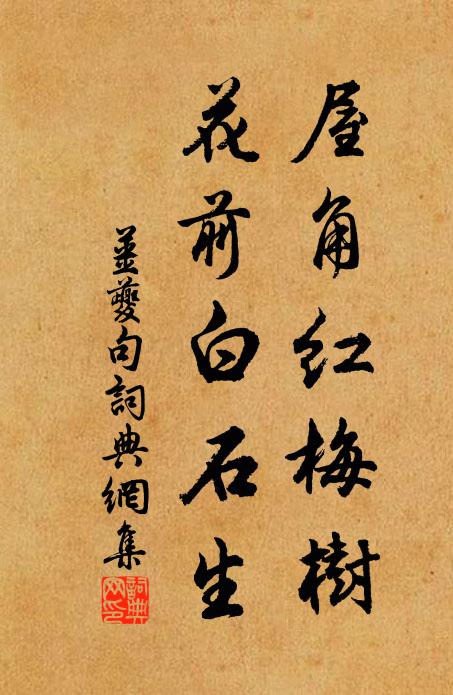 屋角红梅樹
花前白石生
姜夔句詞典網集
詞典網印